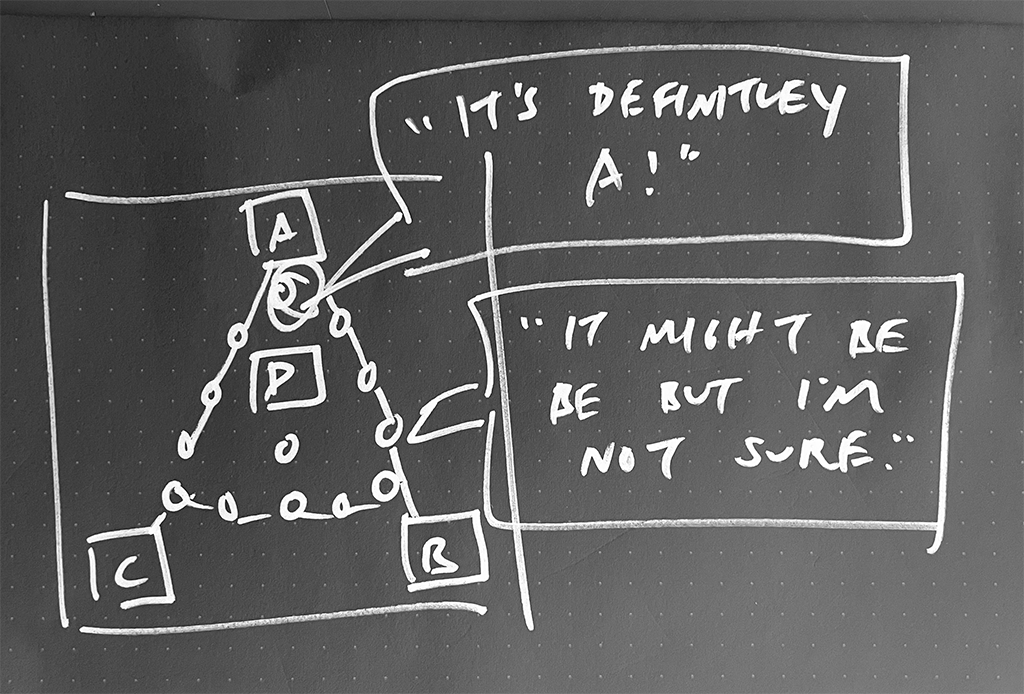 "IT'S DEFINITLEY
A!"
A
"IT MIGHT BE
BE BUT I'M
NOT SURE."
P
C
B